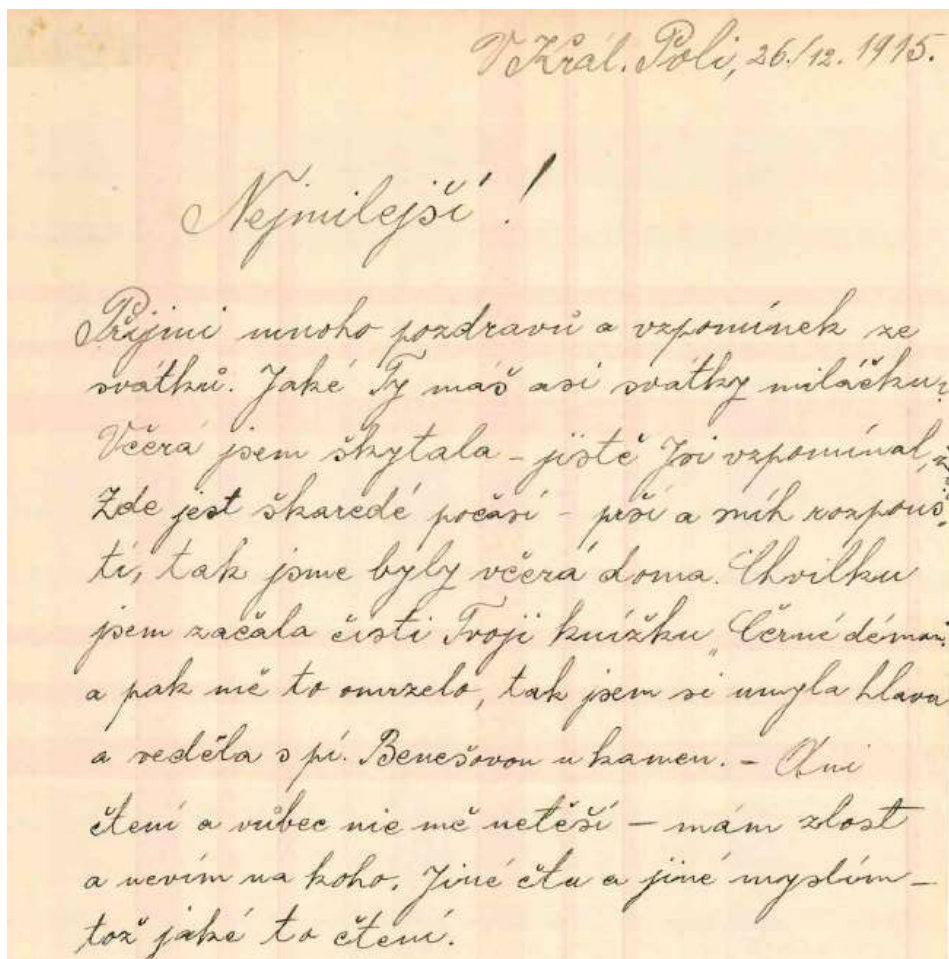 V Král. Poli, 26./12. 1915.
Nejmilejší!
Přijmi mnoho pozdravů a vzpomínek ze
svátků. Jaké Ty máš asi svátky miláčku?
Včera jsem škytala – jistě Jsi vzpomínal,
Zde jest škaredé počasí – prší a sníh rozpouš-
tí, tak jsme byly včera doma. Chvilku
jsem začala čísti Tvoji knížku „Černé
a pak mě to omrzelo, tak jsem si umyla hlavu
a seděla s pí. Benešovou u kamen. – Ani
čtení a vůbec nic mě netěší – mám zlost
a nevím na koho. Jiné čtu a jiné myslím –
tož jaké to čtení.